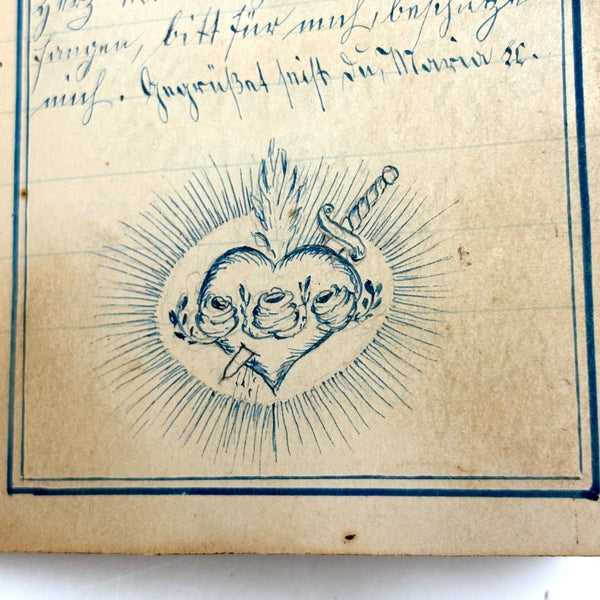 Herz
fangen, bitt für mich, beschütze
mich. Gegrüßet seist du, Maria ꝛc.